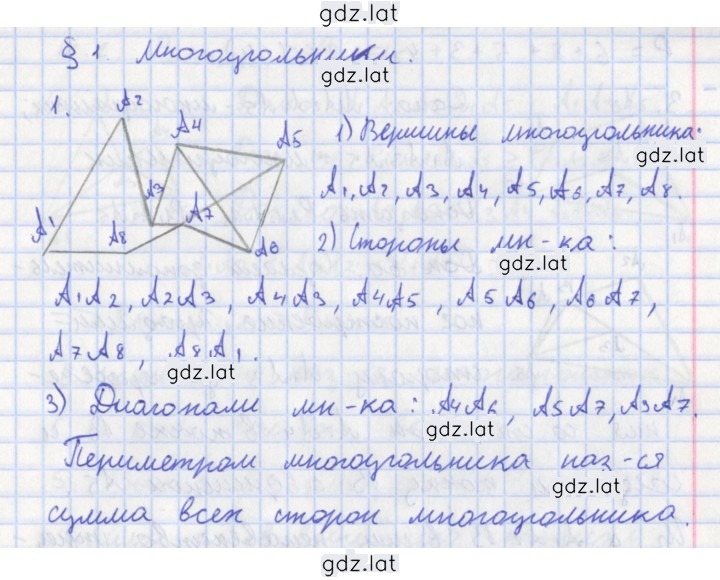 gdz.lat
§ 1 Многоугольники.
gdz.lat
1.
A2
A4
A5
A3
A7
A1
A8
A6
1) Вершины многоугольника:
gdz.lat
A1, A2, A3, A4, A5, A6, A7, A8.
2) Стороны мн-ка:
gdz.lat
A1A2, A2A3, A4A3, A4A5, A5A6, A6A7,
A7A8, A8A1.
gdz.lat
3) Диагонали мн-ка: A4A6, A5A7, A3A7.
gdz.lat
Периметром многоугольника наз-ся
gdz.lat
сумма всех сторон многоугольника.
gdz.lat